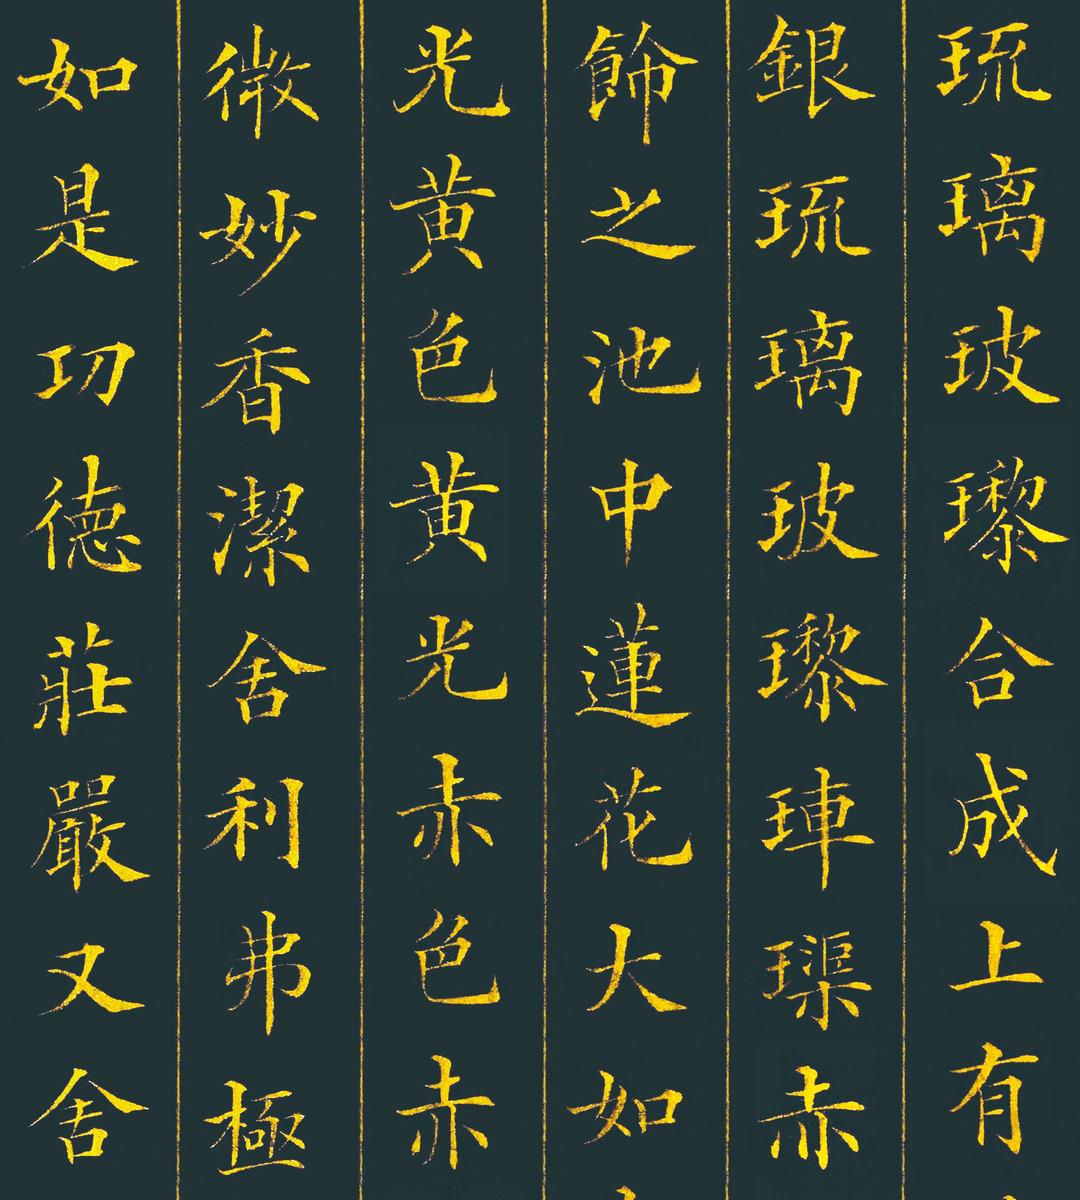 琉璃玻瓈合成上有
銀琉璃玻瓈硨磲赤
飾之池中蓮花大如
光黃色黃光赤色赤
微妙香潔舍利弗極
如是功德莊嚴又舍